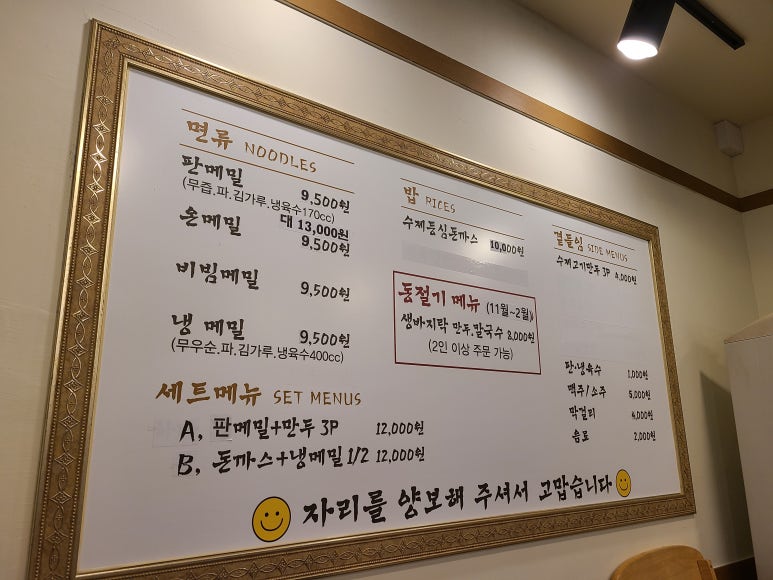 면류 NOODLES
판메밀 9,500원
(무즙.파.김가루.냉육수170cc)
대 13,000원
온메밀 9,500원
비빔메밀 9,500원
냉 메밀 9,500원
(무우순.파.김가루.냉육수400cc)
밥 RICES
수제등심돈까스 10,000원
동절기 메뉴 (11월~2월)
생바지락 만두.칼국수 8,000원
(2인 이상 주문 가능)
곁들임 SIDE MENUS
수제고기만두 3P 4,000원
판·냉육수 1,000원
맥주/소주 5,000원
막걸리 4,000원
음료 2,000원
세트메뉴 SET MENUS
A, 판메밀+만두 3P 12,000원
B, 돈까스+냉메밀 1/2 12,000원
자리를 양보해 주셔서 고맙습니다